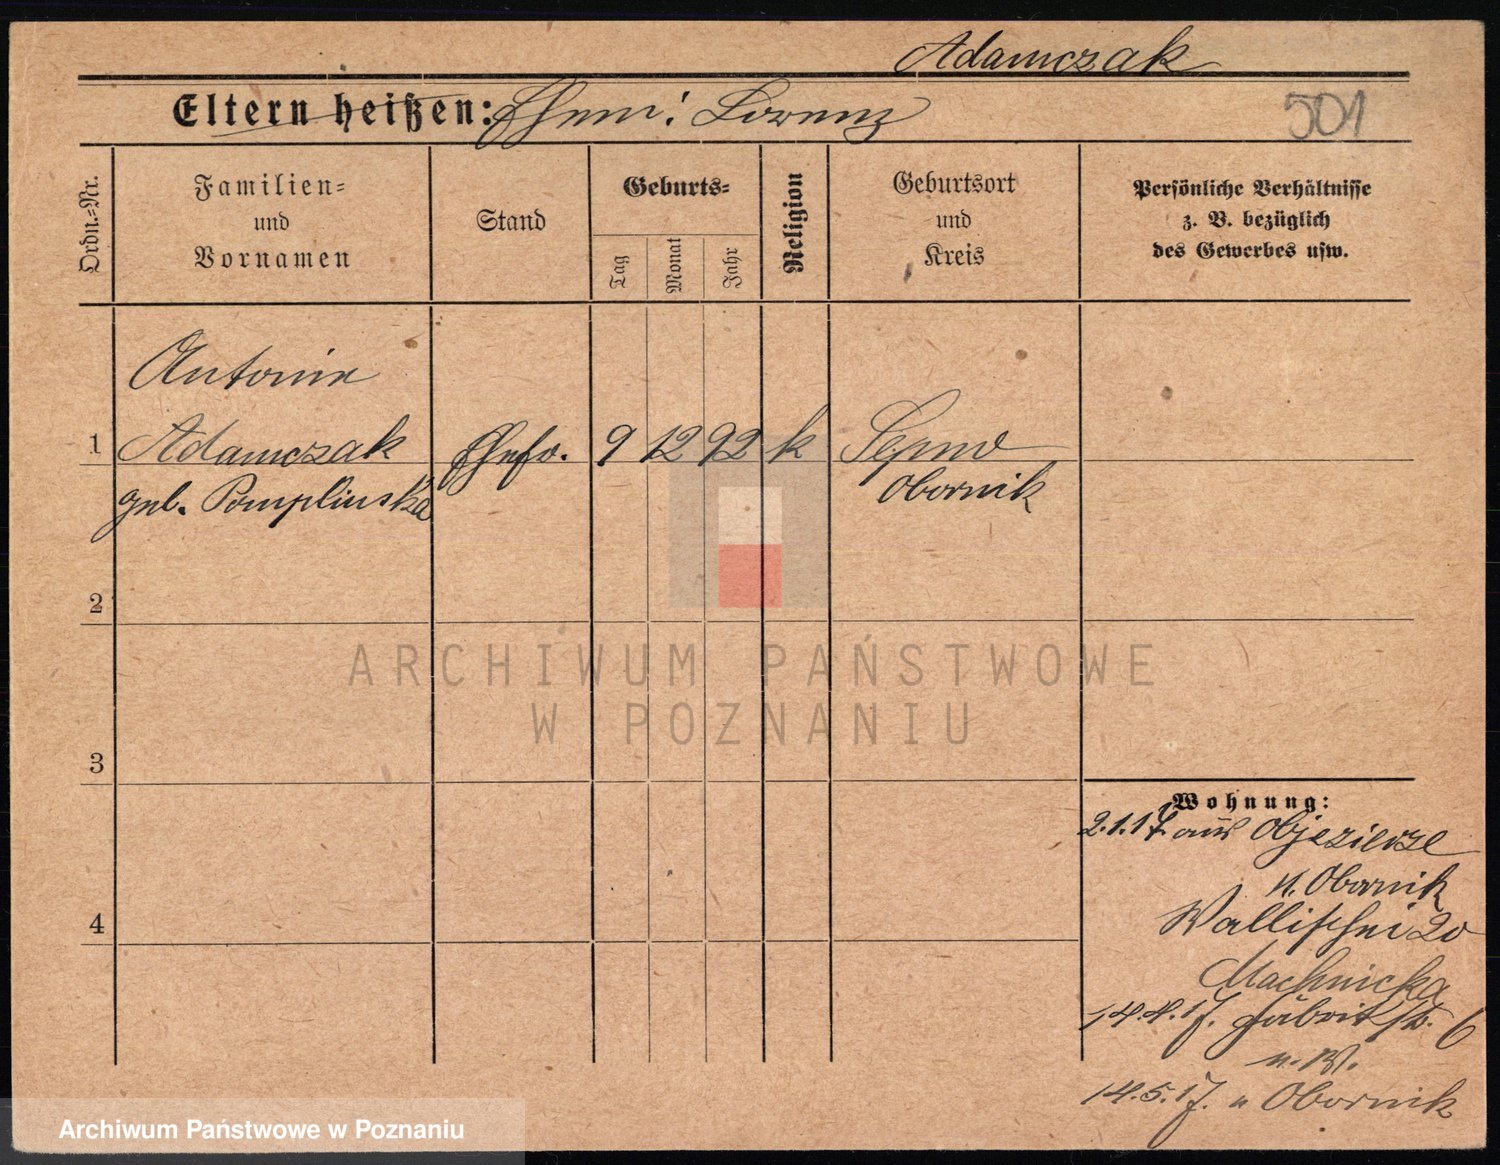 Adamczak
Eltern heißen: Ehem: Lorenz
501
Ordn.=Nr.
Familien=
und
Vornamen
Stand
Geburts=
Tag
Monat
Jahr
Religion
Geburtsort
und
Kreis
Persönliche Verhältnisse
z. B. bezüglich
des Gewerbes usw.
Antonie
1 Adamczak Ehefr. 9 12 92 k
geb. Pomplinska Obornik
2
3
4
ARCHIWUM PAŃSTWOWE
W POZNANIU
Wohnung:
2.1.17 aus Objezierze
n. Obornik
Wallischei 20
Machnicka
14.4.17. Fabrikstr. 6
n. W.
14.5.17. n Obornik
Archiwum Państwowe w Poznaniu